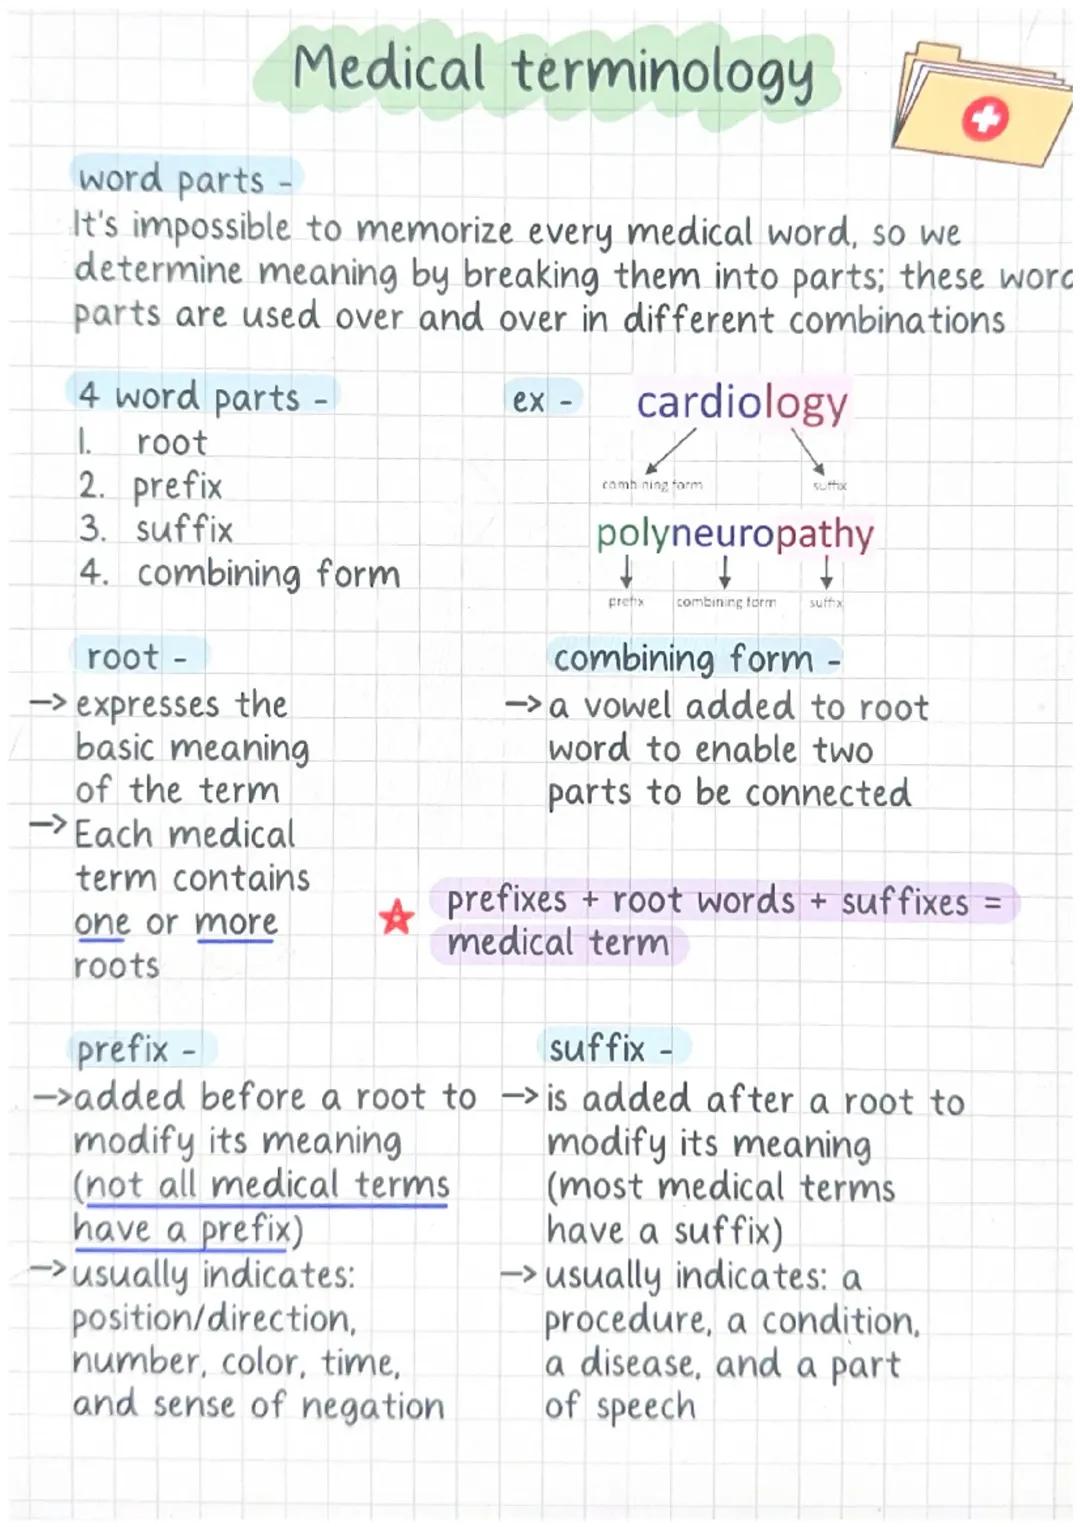 Medical terminology
word parts -
It's impossible to memorize every medical word, so we
determine meaning by breaking them into parts; these word
parts are used over and over in different combinations
4 word parts -
1. root
2. prefix
3. suffix
4. combining form
ex -
cardiology
combining form suffix
polyneuropathy
prefix combining form suffix
root -
-> expresses the
basic meaning
of the term
-> Each medical
term contains
one or more
roots
combining form -
-> a vowel added to root
word to enable two
parts to be connected
prefixes + root words + suffixes =
medical term
prefix -
-> added before a root to
modify its meaning
(not all medical terms
have a prefix)
-> usually indicates:
position/direction,
number, color, time,
and sense of negation
suffix -
-> is added after a root to
modify its meaning
(most medical terms
have a suffix)
-> usually indicates: a
procedure, a condition,
a disease, and a part
of speech